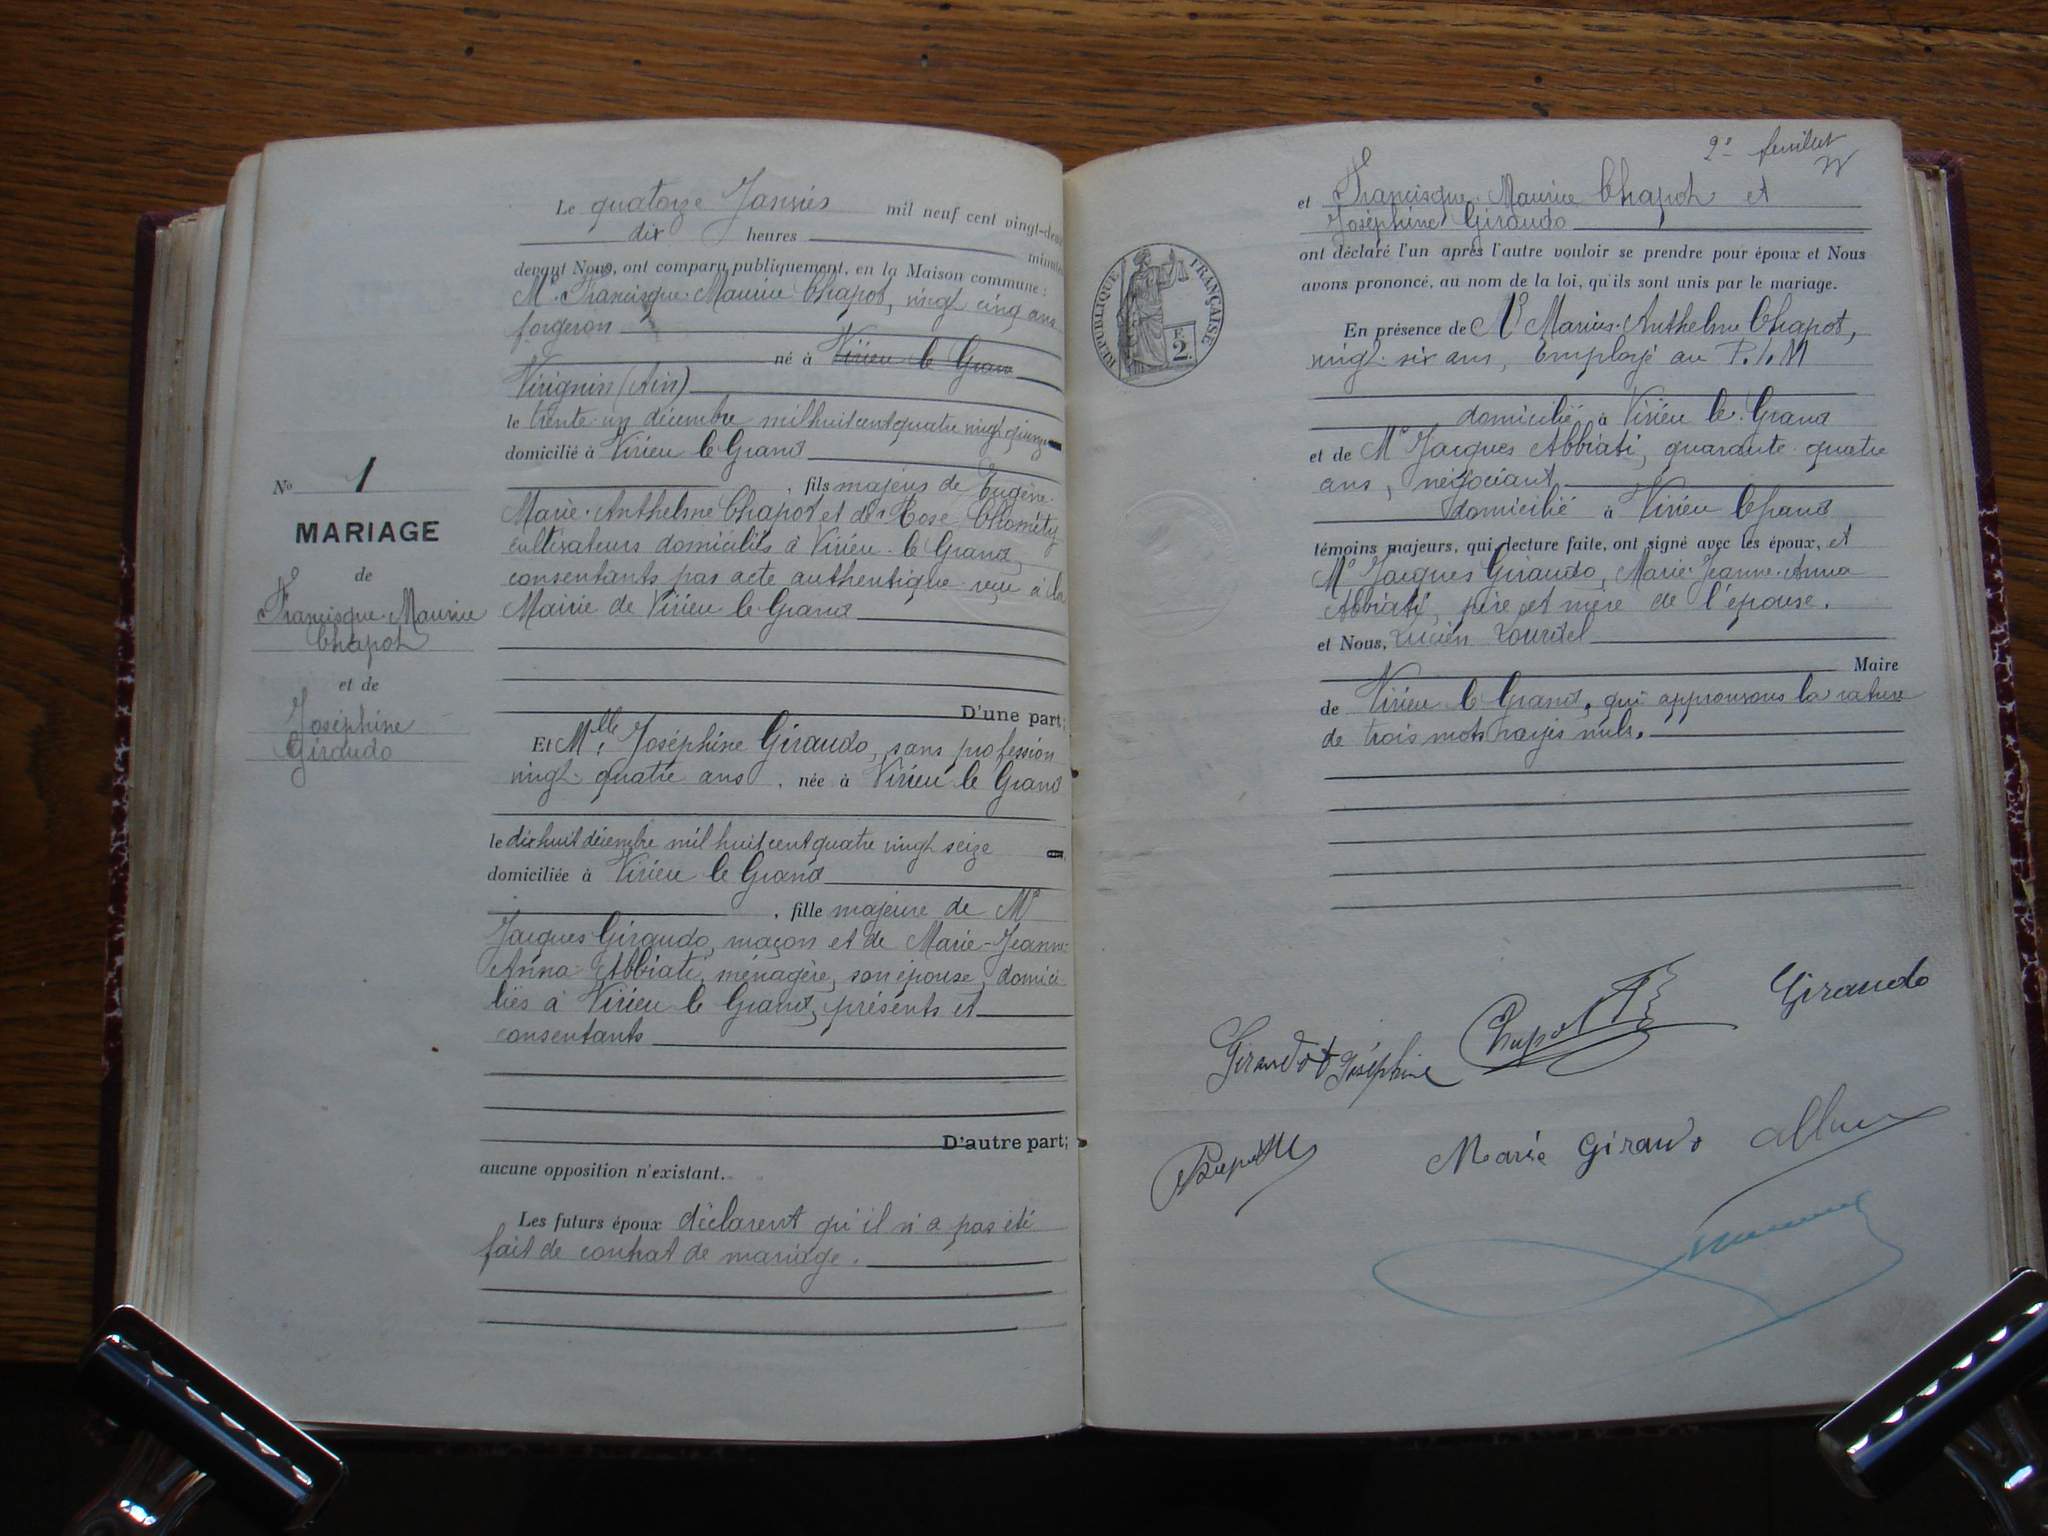 Le quatorze Janvier mil neuf cent vingt-deux
dix heures minutes
devant Nous, ont comparu publiquement, en la Maison commune :
Mr Francisque-Maurice Chapot, vingt cinq ans
forgeron
né à Virieu-le-Grand
Virignin (Ain)
le trente-un décembre mil huit cent quatre vingt quinze
domicilié à Virieu le Grand
, fils majeur de Eugène-
Marie-Anthelme Chapot et de Rose
cultivateurs domiciliés à Virieu-le-Grand,
consentants par acte authentique reçu à la
Mairie de Virieu le Grand
D'une part;
Et Mlle Joséphine Giraudo, sans profession
vingt-quatre ans , née à Virieu le Grand
le dix huit décembre mil huit cent quatre vingt seize
domiciliée à Virieu le Grand
, fille majeure de Mr
Jacques Giraudo, maçon et de Marie-Jeanne-
Anna Abbiati, ménagère, son épouse, domici
liés à Virieu le Grand, présents et
consentants
D'autre part;
aucune opposition n'existant.
Les futurs époux déclarent qu'il n'a pas été
fait de contrat de mariage.
No 1
MARIAGE
de
Francisque-Maurice
Chapot
et de
Joséphine
Giraudo
2e feuillet
et Francisque-Maurice Chapot et
Joséphine Giraudo
ont déclaré l'un après l'autre vouloir se prendre pour époux et Nous
avons prononcé, au nom de la loi, qu'ils sont unis par le mariage.
En présence de Mr Marius-Anthelme Chapot,
vingt-six ans, Employé au P.L.M
domicilié à Virieu le Grand
et de Mr Jacques Abbiati, quarante-quatre
ans, négociant
domicilié à Virieu le grand
témoins majeurs, qui, lecture faite, ont signé avec les époux, et
Mr Jacques Giraudo, Marie-Jeanne-Anna
Abbiati, père et mère de l'épouse.
et Nous, Lucien
Maire
de Virieu le Grand, qui approuvons la rature
de trois mots rayés nuls.
RÉPUBLIQUE FRANÇAISE
F
2
Giraudo Joséphine
Chapot
Giraudo
Marie Giraudo